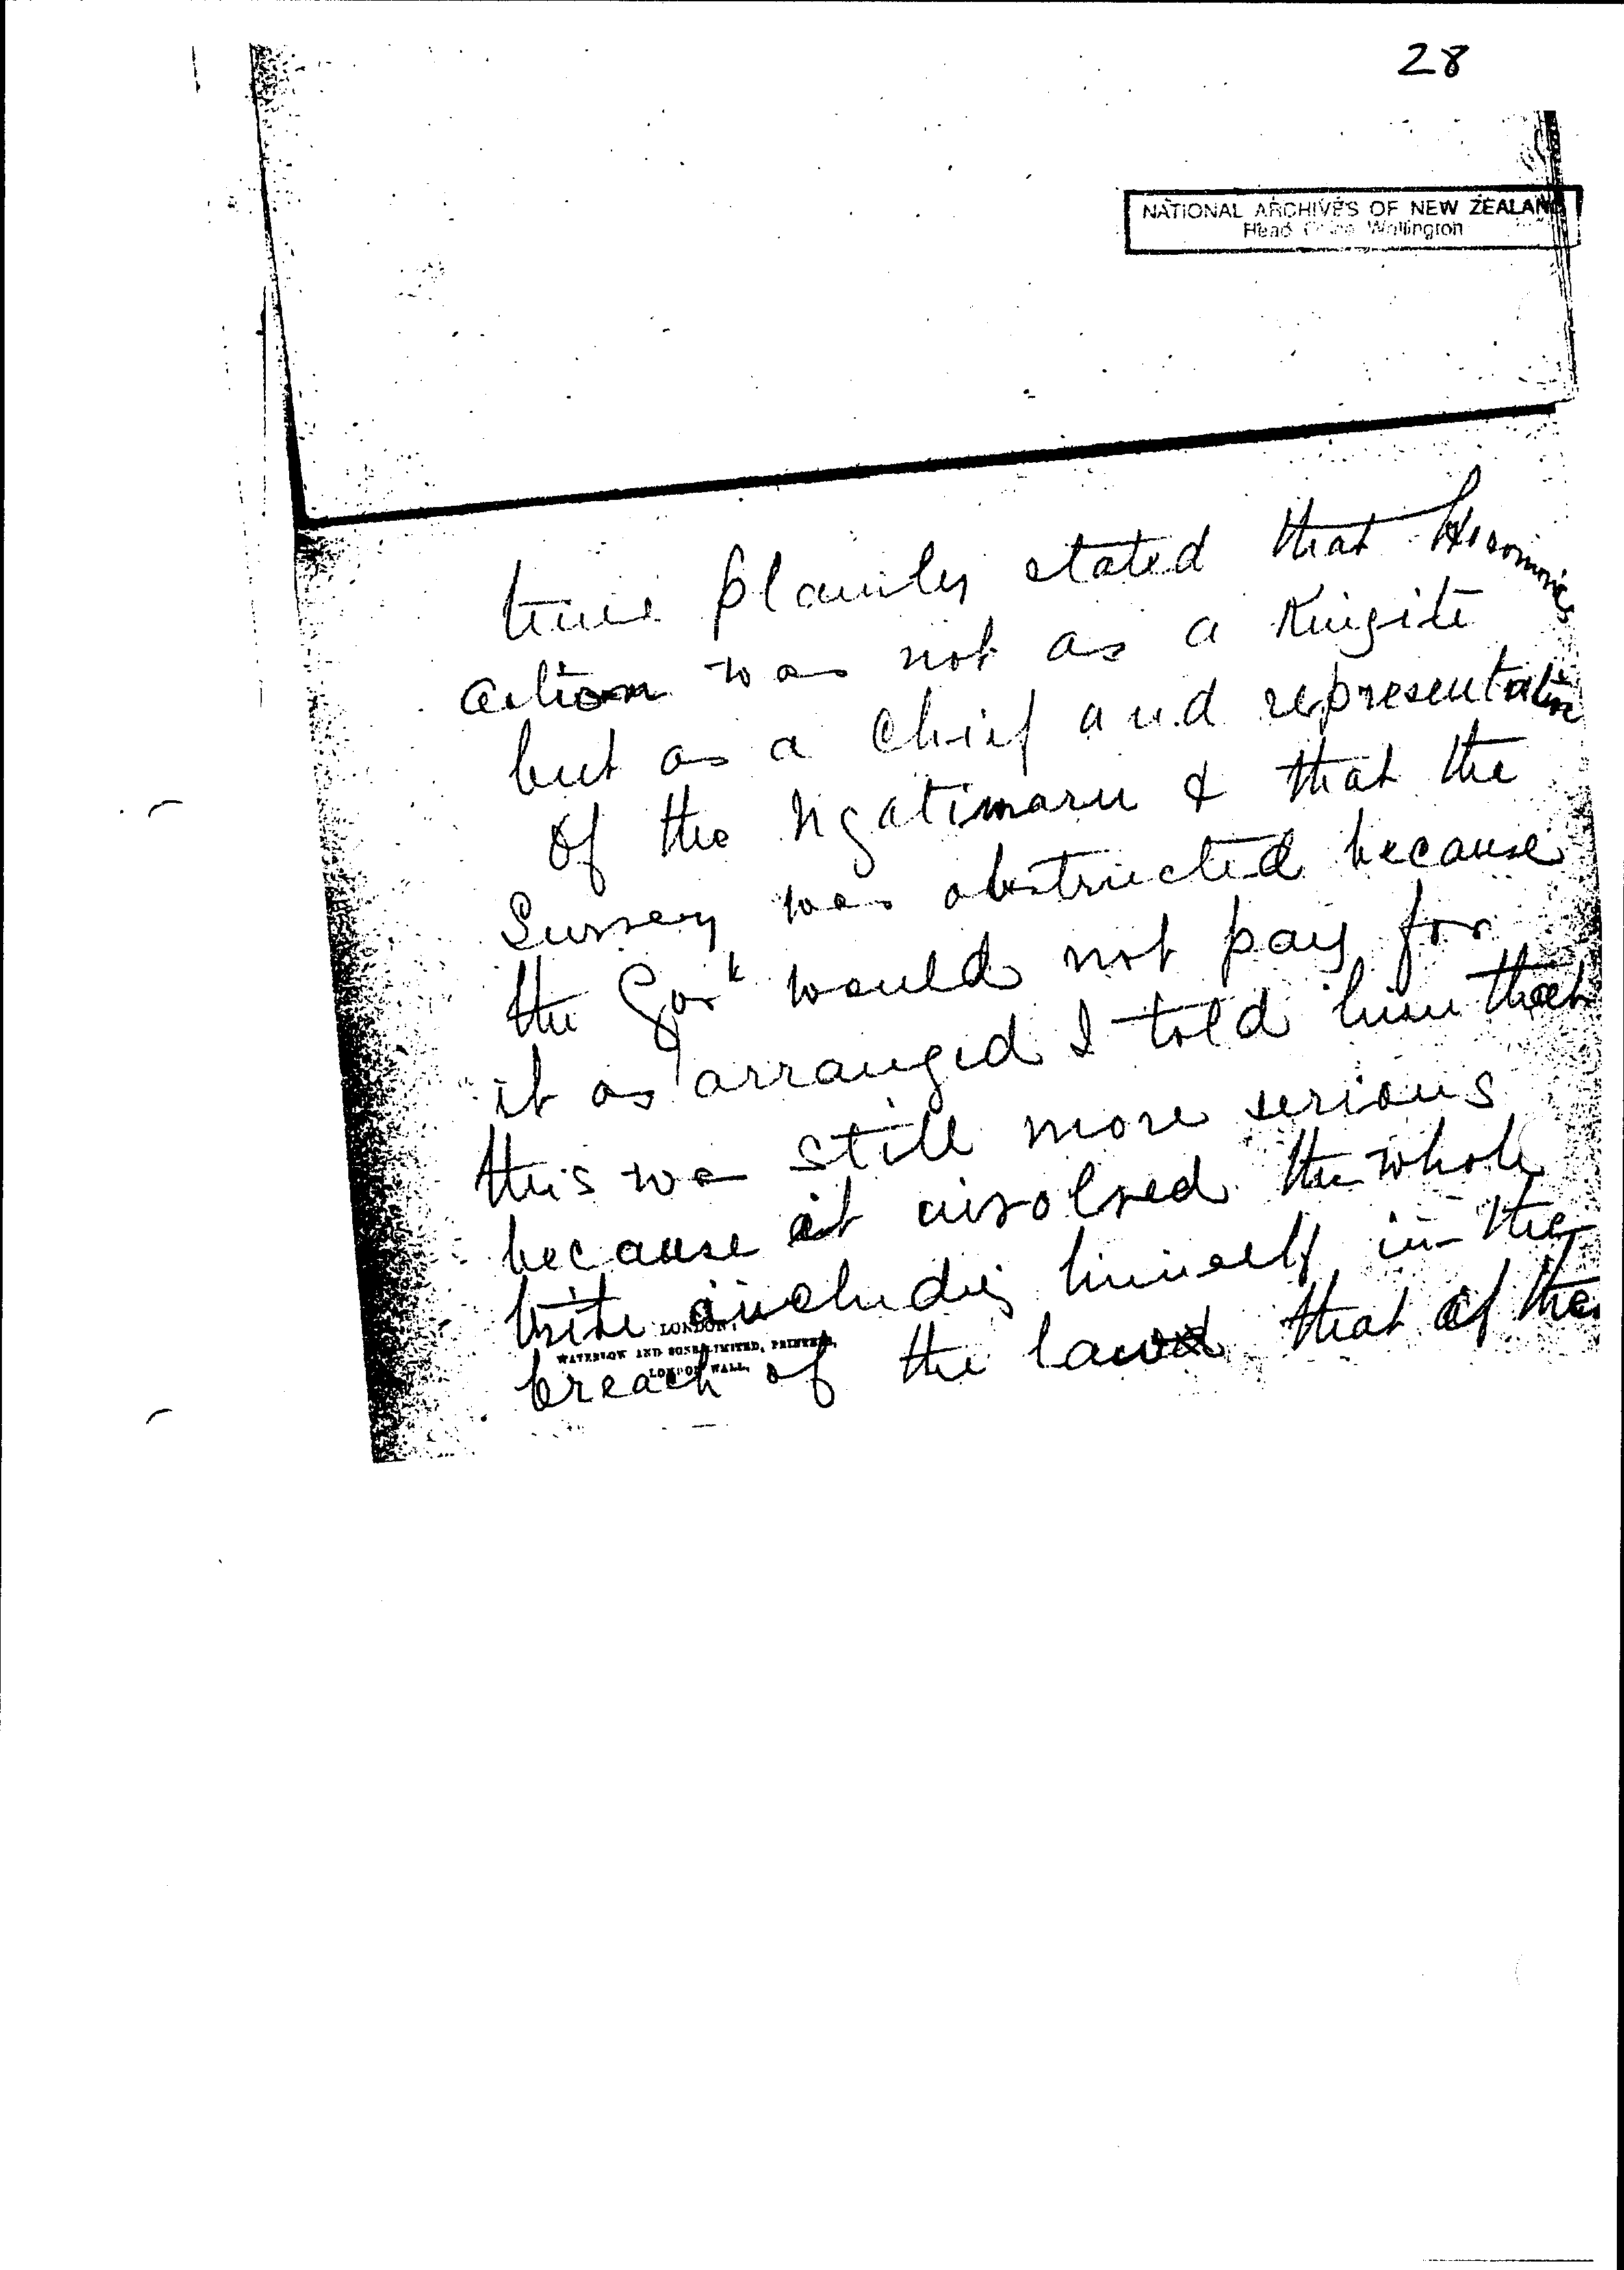 28
NATIONAL ARCHIVES OF NEW ZEALAND
Head Office Wellington
time plainly stated that
action was not as a Kingite
but as a Chief and representative
of the Ngatimaru & that the
Survey was obstructed because
the Govt would not pay for
it as arranged I told him that
this was still more serious
because it involved the whole
tribe including himself in the
breach of the law & that if the
LONDON:
WATERLOW AND SONS LIMITED, PRINTERS,
LONDON WALL.